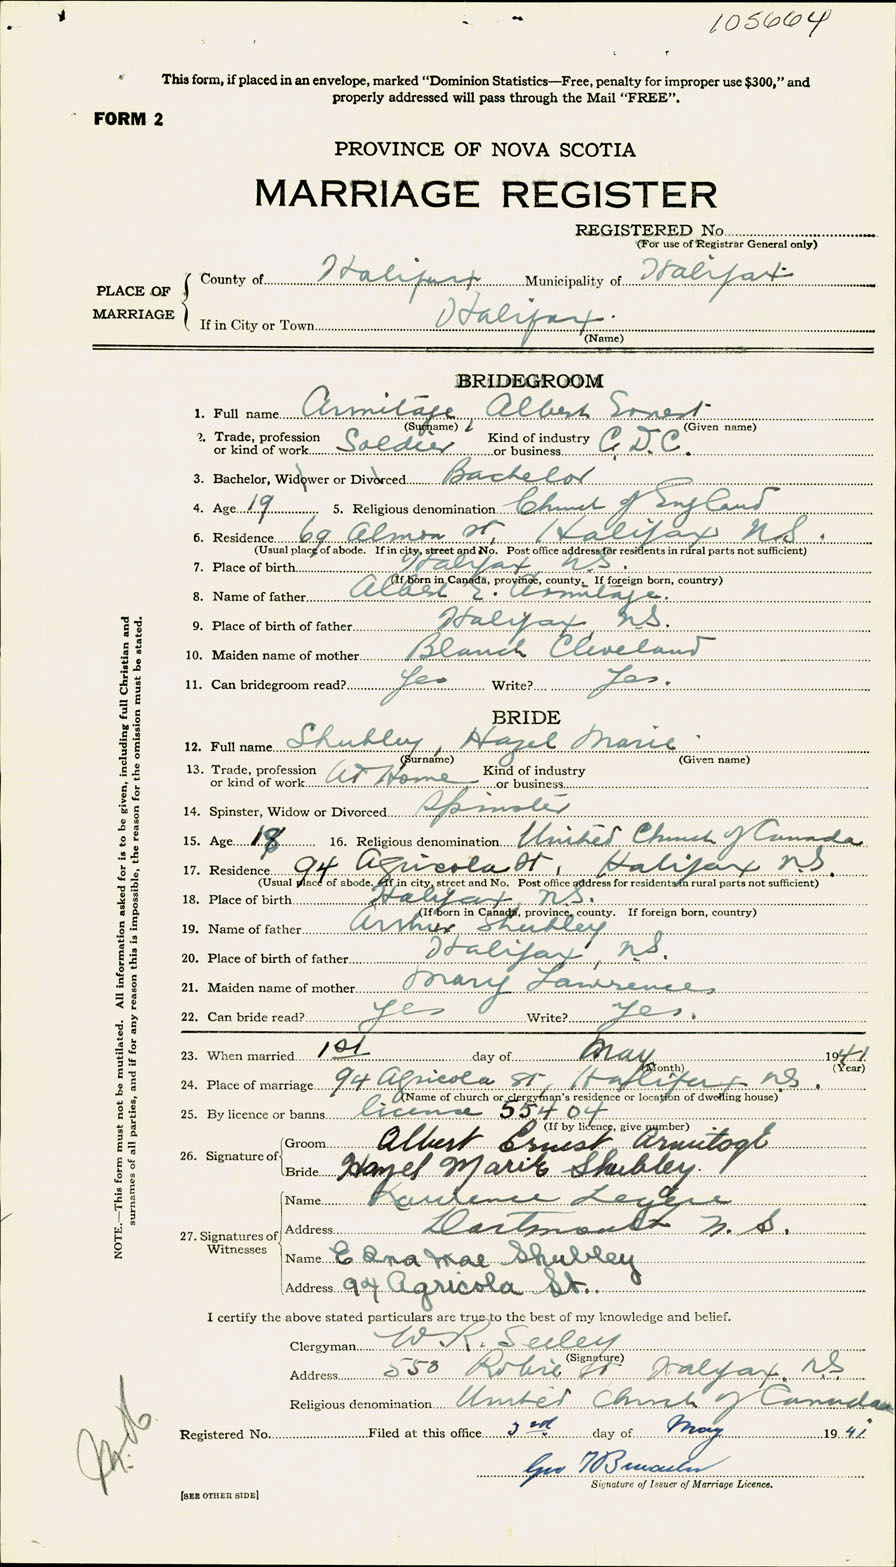 105664
This form, if placed in an envelope, marked "Dominion Statistics—Free, penalty for improper use $300," and
properly addressed will pass through the Mail "FREE".
FORM 2
PROVINCE OF NOVA SCOTIA
MARRIAGE REGISTER
REGISTERED No.
(For use of Registrar General only)
PLACE OF MARRIAGE
County of Halifax Municipality of Halifax
If in City or Town Halifax.
(Name)
BRIDEGROOM
1. Full name Armitage, Albert Ernest
(Surname) (Given name)
2. Trade, profession or kind of work Soldier Kind of industry or business C.D.C.
3. Bachelor, Widower or Divorced Bachelor
4. Age 19 5. Religious denomination Church of England
6. Residence 69 Almon St, Halifax N.S.
(Usual place of abode. If in city, street and No. Post office address for residents in rural parts not sufficient)
7. Place of birth Halifax N.S.
(If born in Canada, province, county. If foreign born, country)
8. Name of father Albert E. Armitage.
9. Place of birth of father Halifax, N.S.
10. Maiden name of mother Blanch Cleveland
11. Can bridegroom read? Yes Write? Yes.
BRIDE
12. Full name Shubley, Hazel Marie
(Surname) (Given name)
13. Trade, profession or kind of work At Home Kind of industry or business
14. Spinster, Widow or Divorced Spinster
15. Age 18 16. Religious denomination United Church of Canada
17. Residence 94 Agricola St, Halifax N.S.
(Usual place of abode. If in city, street and No. Post office address for residents in rural parts not sufficient)
18. Place of birth Halifax, N.S.
(If born in Canada, province, county. If foreign born, country)
19. Name of father Arthur Shubley
20. Place of birth of father Halifax, N.S.
21. Maiden name of mother Mary Lawrence
22. Can bride read? Yes Write? Yes.
23. When married 1st day of May 1941
(Month) (Year)
24. Place of marriage 94 Agricola St, Halifax N.S.
(Name of church or clergyman's residence or location of dwelling house)
25. By licence or banns license 55404
(If by licence, give number)
26. Signature of Groom Albert Ernest Armitage
Bride Hazel Marie Shubley.
27. Signatures of Witnesses Name Laurence Legere
Address Dartmouth N.S.
Name Edna Mae Shubley
Address 94 Agricola St.
I certify the above stated particulars are true to the best of my knowledge and belief.
Clergyman W R. Seeley
(Signature)
Address 553 Robie St Halifax, N.S
Religious denomination United Church of Canada
Registered No. Filed at this office 3rd day of May 1941
Geo
Signature of Issuer of Marriage Licence.
[SEE OTHER SIDE]
NOTE.—This form must not be mutilated. All information asked for is to be given, including full Christian and
surnames of all parties, and if for any reason this is impossible, the reason for the omission must be stated.